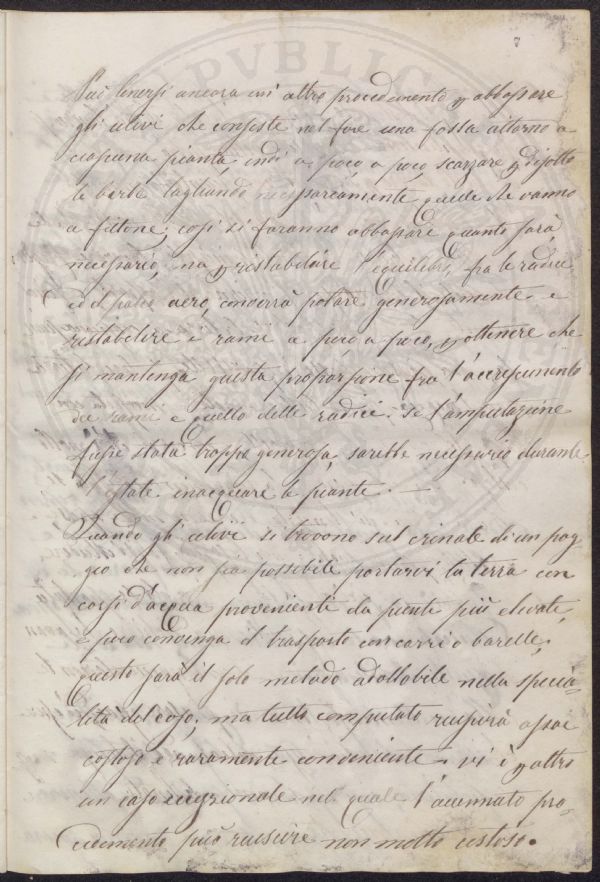 7
Può tenersi ancora un' altro procedimento p abbassare
gli ulivi che consiste nel fare una fossa attorno a
ciascuna pianta, indi a poco a poco scazzare p disotto
le barbe tagliando necessariamente quelle che vanno
a fittone; così si faranno abbassare quanto sarà
necessario, ma p ristabilire l'equilibri, fra le radici
ed il palco aereo, converrà potare generosamente e
ristabilire i rami a poco a poco, p ottenere che
si mantenga questa proporsione fra l'accrescimento
dei rami e quello delle radici. Se l'amputazione
fusse stata troppo generosa, sarebbe necessario durante
l'estate inacquare le piante. —
Quando gli ulivi si trovono sul crinale di un pog-
gio che non sia possibile portarvi la terra con
corsi d'acqua proveniente da punte più elevate,
e poco convenga il trasporto con carri o barelle,
questo sarà il solo metodo adottabile nella specia-
lità del caso; ma tutto computato riuscirà assai
costoso e raramente conveniente. vi è p altro
un caso eccezionale nel quale l'accennato pro
cedimento può riuscire non molto costoso.
PVBLIC